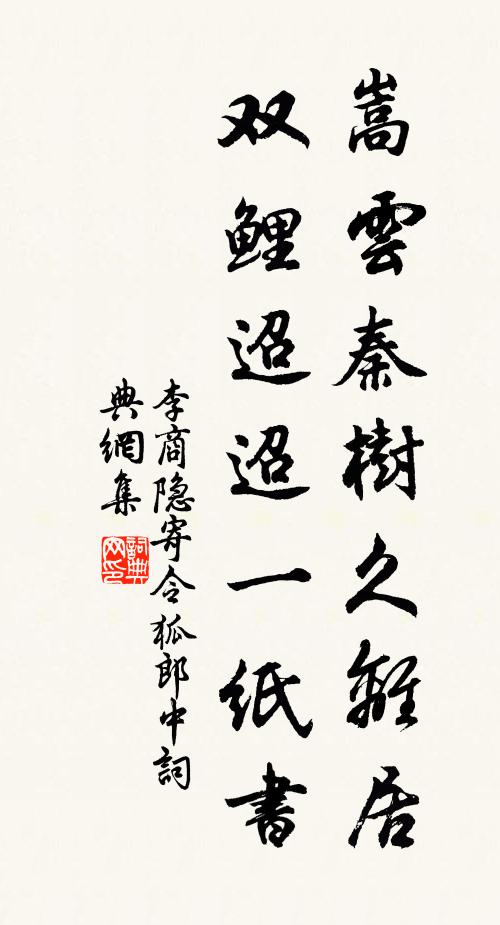 嵩雲秦樹久離居
双鲤迢迢一纸書
李商隐寄令狐郎中詞
典網集
詞典网印